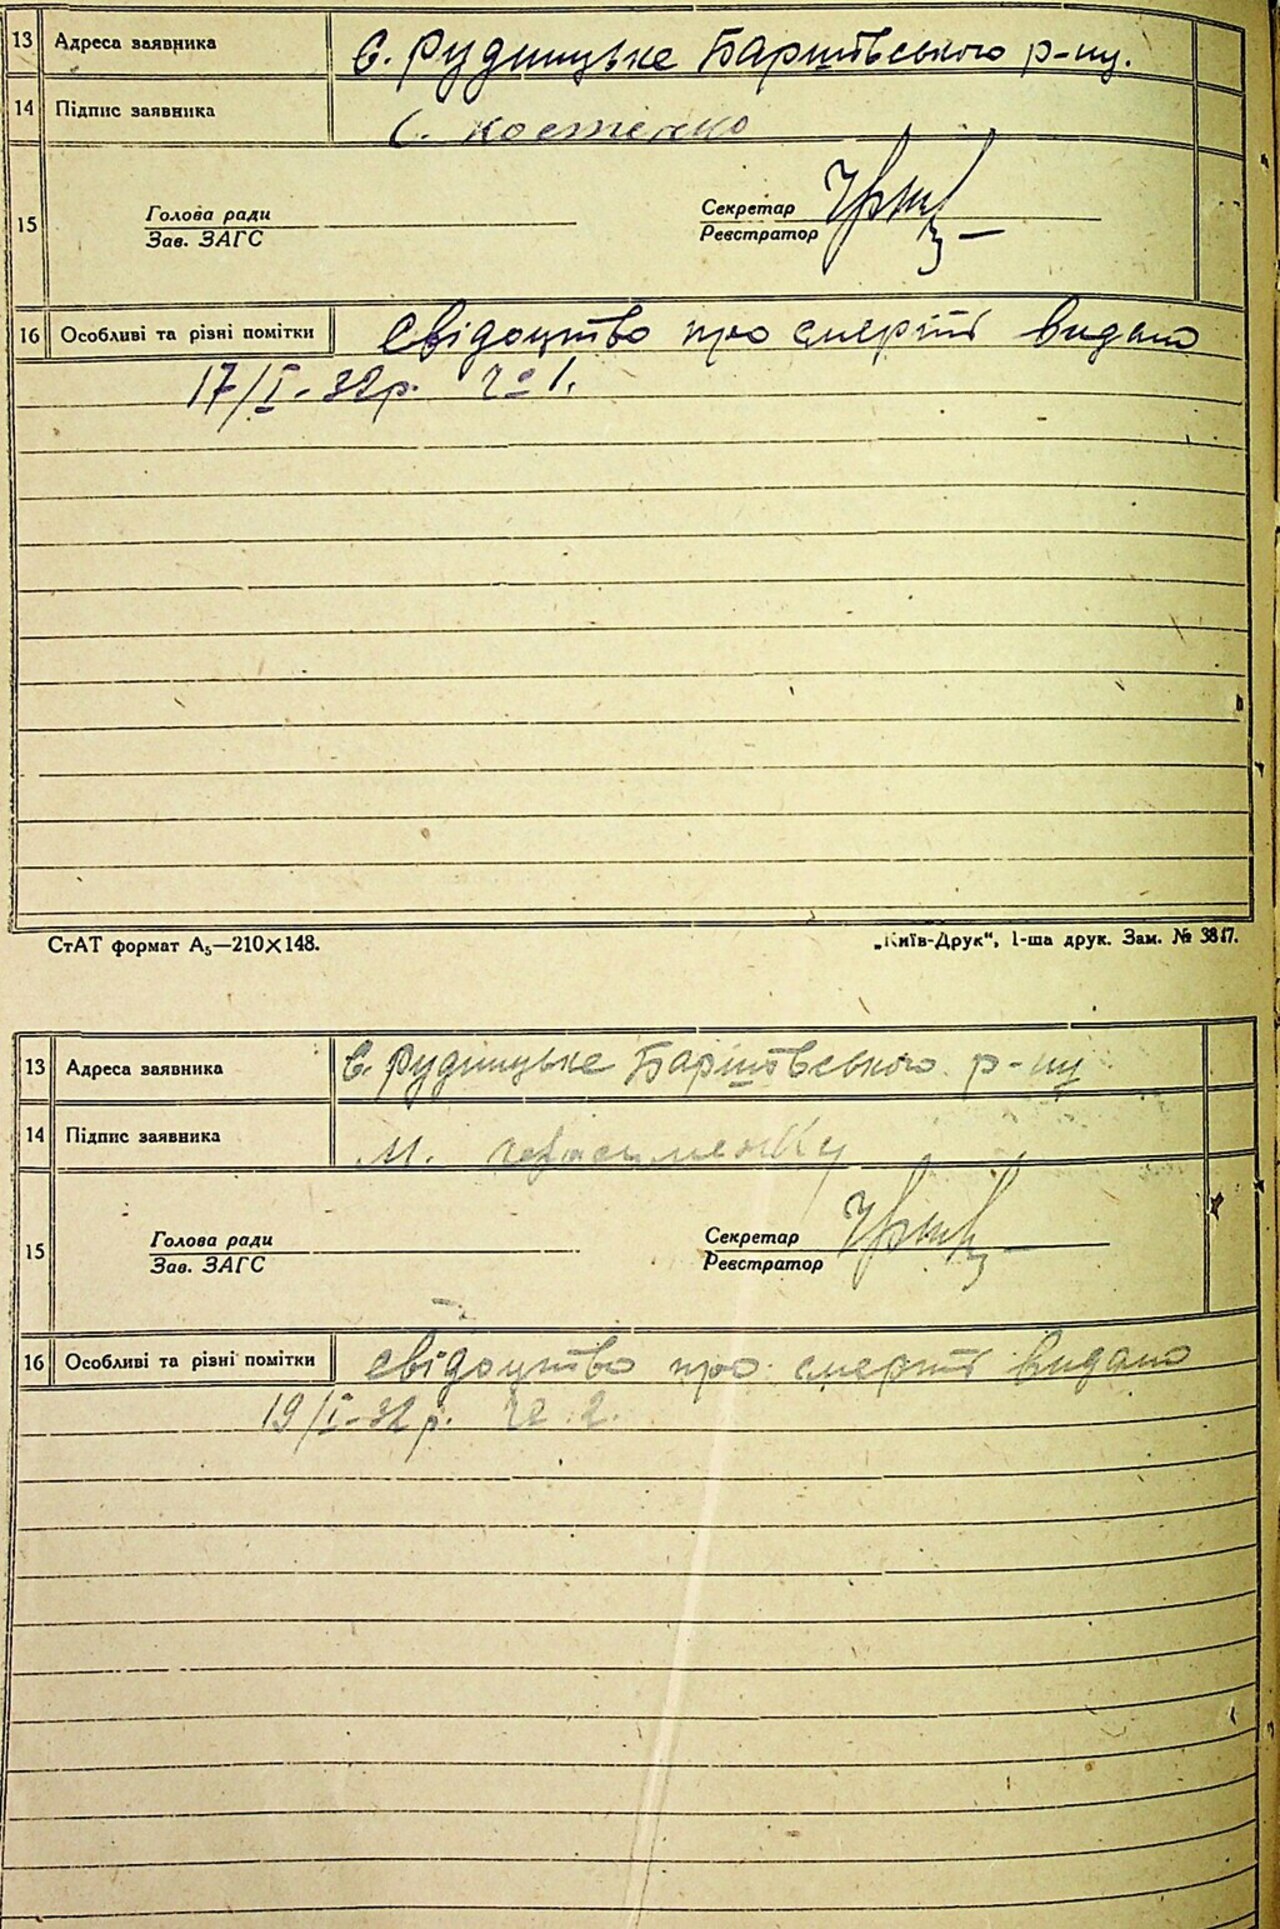 13 Адреса заявника с. Рудницьке Баришівського р-ну.
14 Підпис заявника С. Костенко
15 Голова ради Секретар
Зав. ЗАГС Реєстратор
16 Особливі та різні помітки Свідоцтво про смерть видано
17/I-32р. № 1.
СтАТ формат А₅—210×148. „Київ-Друк“, 1-ша друк. Зам. № 3817.
13 Адреса заявника с. Рудницьке Баришівського р-ну
14 Підпис заявника М.
15 Голова ради Секретар
Зав. ЗАГС Реєстратор
16 Особливі та різні помітки свідоцтво про смерть видано
19/I-32р. № 2.